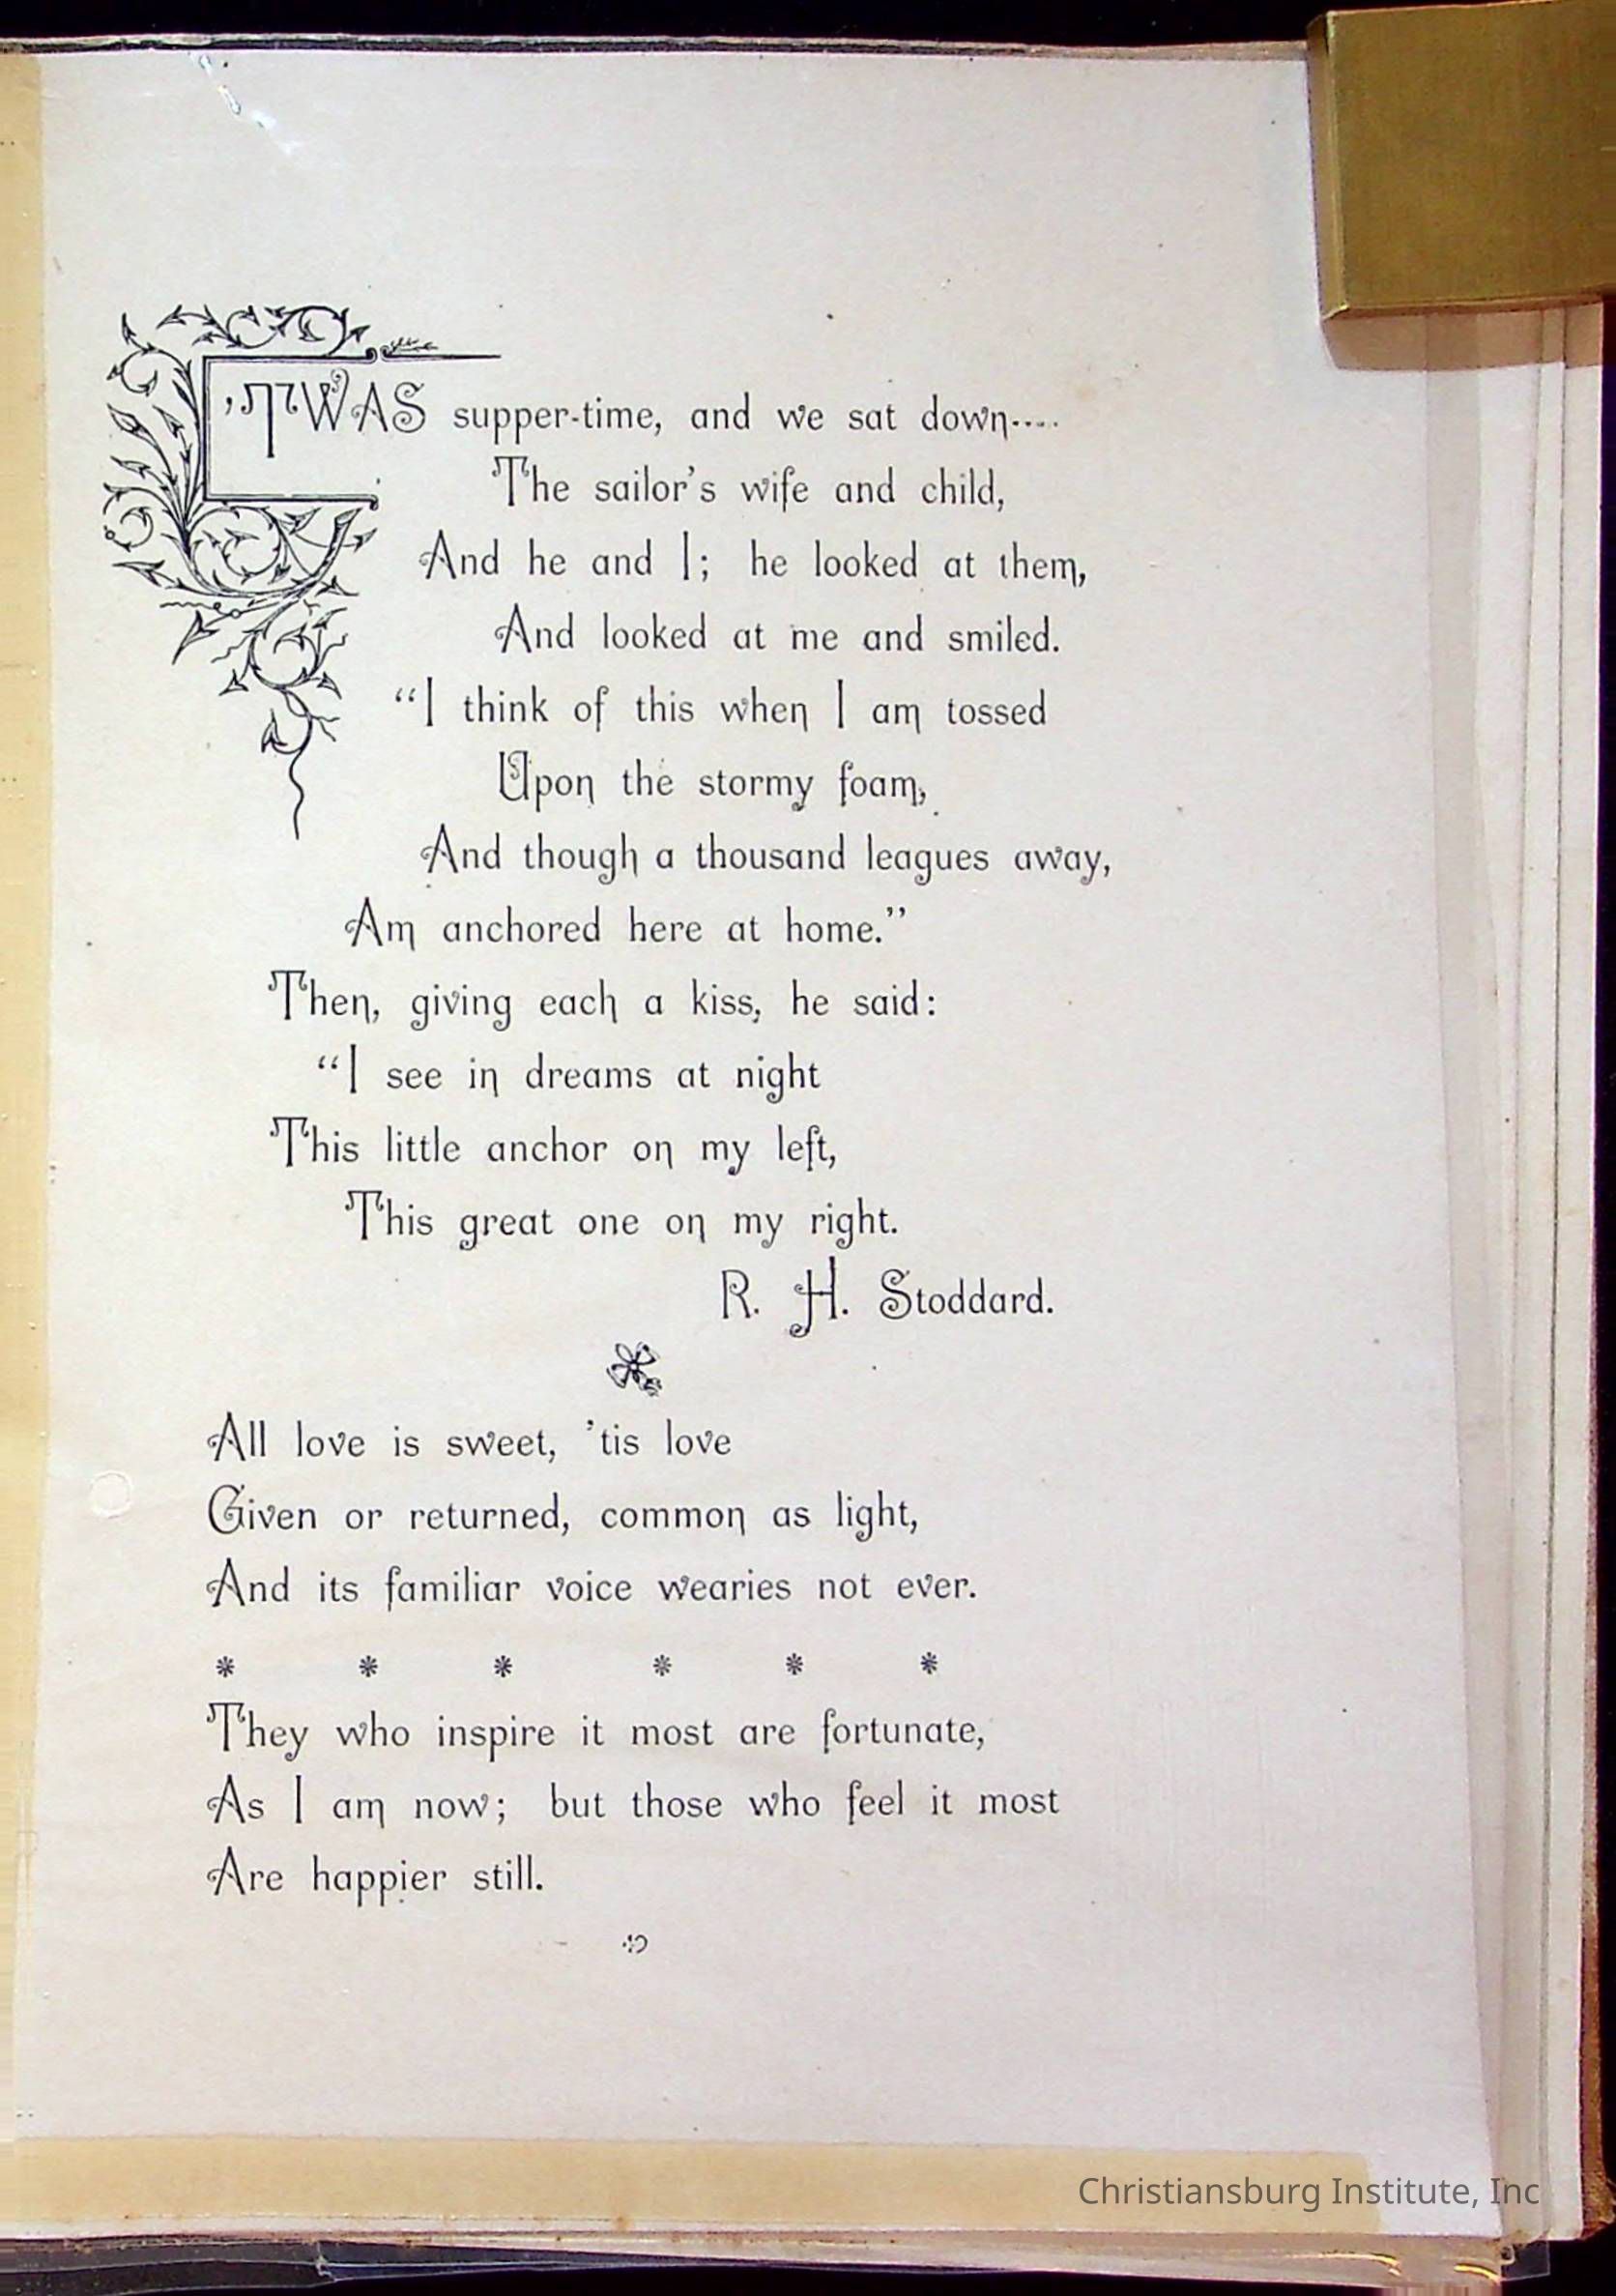 'TWAS supper-time, and we sat down....
The sailor's wife and child,
And he and I; he looked at them,
And looked at me and smiled.
“I think of this when I am tossed
Upon the stormy foam,
And though a thousand leagues away,
Am anchored here at home.”
Then, giving each a kiss, he said:
“I see in dreams at night
This little anchor on my left,
This great one on my right.
R. H. Stoddard.
All love is sweet, 'tis love
Given or returned, common as light,
And its familiar voice wearies not ever.
* * * * * *
They who inspire it most are fortunate,
As I am now; but those who feel it most
Are happier still.
Christiansburg Institute, Inc